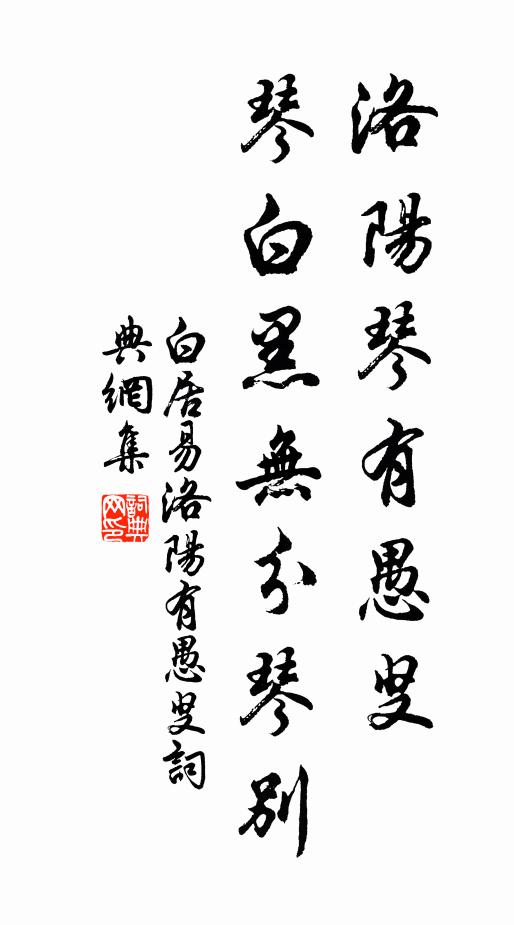 洛陽琴有愚叟
琴白黑無分琴別
白居易洛陽有愚叟詞
典網集
詞典
网印